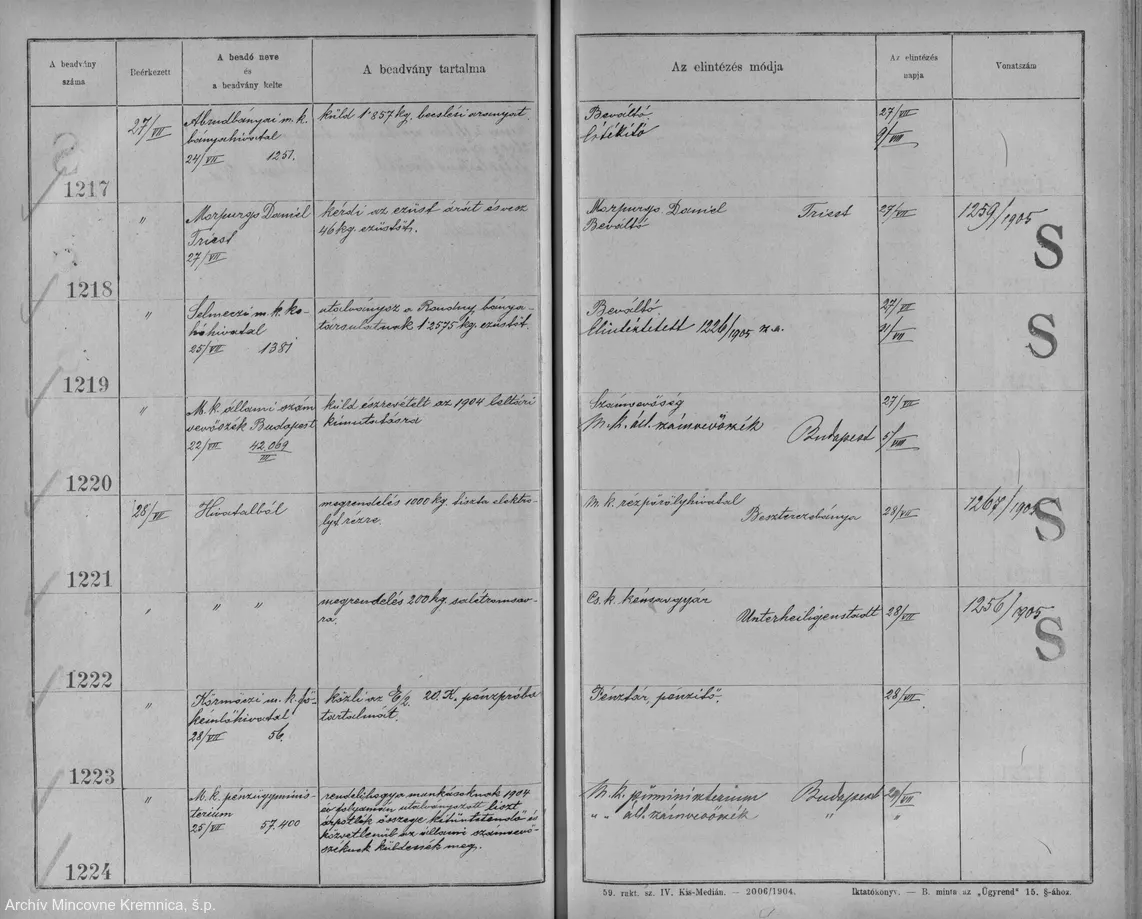 A beadvány száma
Beérkezett
A beadó neve és a beadvány kelte
A beadvány tartalma
Az elintézés módja
Az elintézés napja
Vonatszám
1217
27/VII
Abrudbányai m. k.
bányahivatal
24/VII 1251.
küld 1·857 kg. becslési aranyat.
Beváltó
Értékitő
27/VII
9/VIII
1218
"
Morpurgo Daniel
Triest
27/VII
kérdi az ezüst árát és vesz
46 kg. ezüstöt.
Morpurgo Daniel Triest
Beváltó
27/VII
1259/1905
S
1219
"
Selmeczi m. k. ko-
hóhivatal
25/VII 1381
utalványoz a Rondny bánya-
társulatnak 1·2575 kg. ezüstöt.
Beváltó
Elintéztetett 1226/1905 sz. a.
27/VII
31/VII
S
1220
"
M. k. állami szám
vevőszék Budapest
22/VII 42.069/III
küld észrevételt az 1904 leltári
kimutatásra
Számvevőség
M. k. áll. számvevőszék
Budapest
27/VII
5/VIII
1221
28/VII
Hivatalból
megrendelés 1000 kg. tiszta elektro-
lyt rézre.
M. k. rézpörölyhivatal
Beszterczebánya
28/VII
1267/1905
S
1222
"
" "
megrendelés 200 kg. salétromsav-
ra.
Cs. k. kénsavgyár
Unterheiligenstadt
28/VII
1256/1905
S
1223
"
Körmöczi m. k. fő-
kémlőhivatal
28/VII 56.
közli az E/2. 20. K. pénzpróba
tartalmát.
Pénztár, pénzitő.
28/VII
1224
"
M. k. pénzügyminis-
terium
25/VII 57.400
rendeli hogy a munkásoknak 1904
év folyamán utalványozott liszt
árpótlék összege kitüntetendő és
közvetlenül az állami számvevő-
széknek küldessék meg.
M. k. p. ü. miniszterium Budapest
" " áll. számvevőszék "
29/VII
"
59. rakt. sz. IV. Kis-Medián. — 2006/1904.
Iktatókönyv. — B. minta az „Ügyrend" 15. §-ához.
Archív Mincovne Kremnica, š.p.